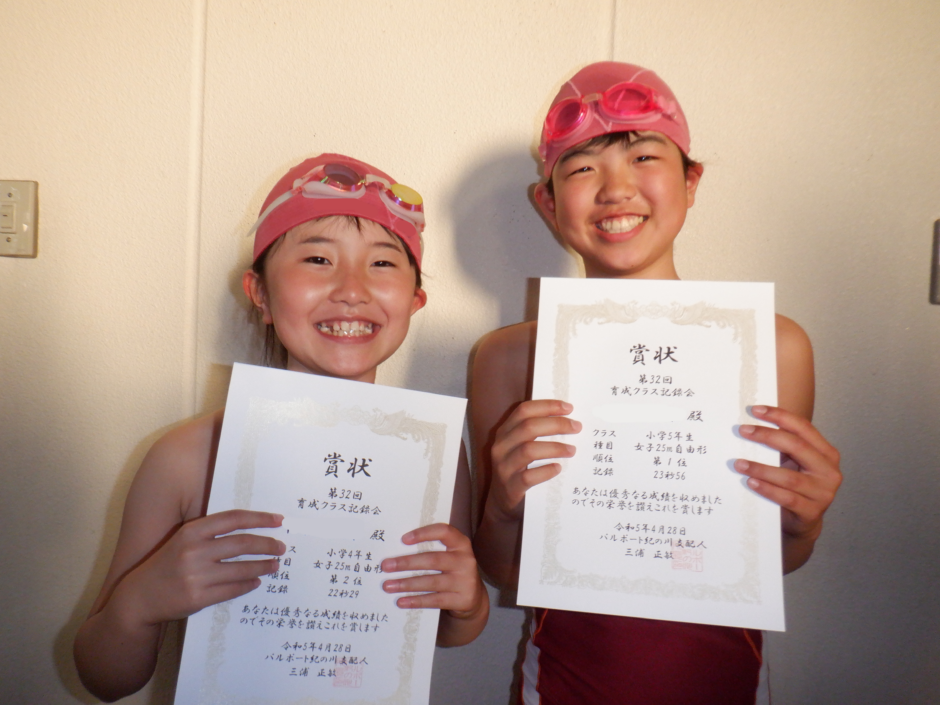 賞状
第32回
育成クラス記録会
殿
ス 小学4年生
種目 女子25m自由形
順位 第2位
記録 22秒29
あなたは優秀なる成績を収めました
のでその栄誉を讃えこれを賞します
令和5年4月28日
パルポート紀の川支配人
三浦 正敏
賞状
第32回
育成クラス記録会
殿
クラス 小学5年生
種目 女子25m自由形
順位 第1位
記録 23秒56
あなたは優秀なる成績を収めました
のでその栄誉を讃えこれを賞します
令和5年4月28日
パルポート紀の川支配人
三浦 正敏